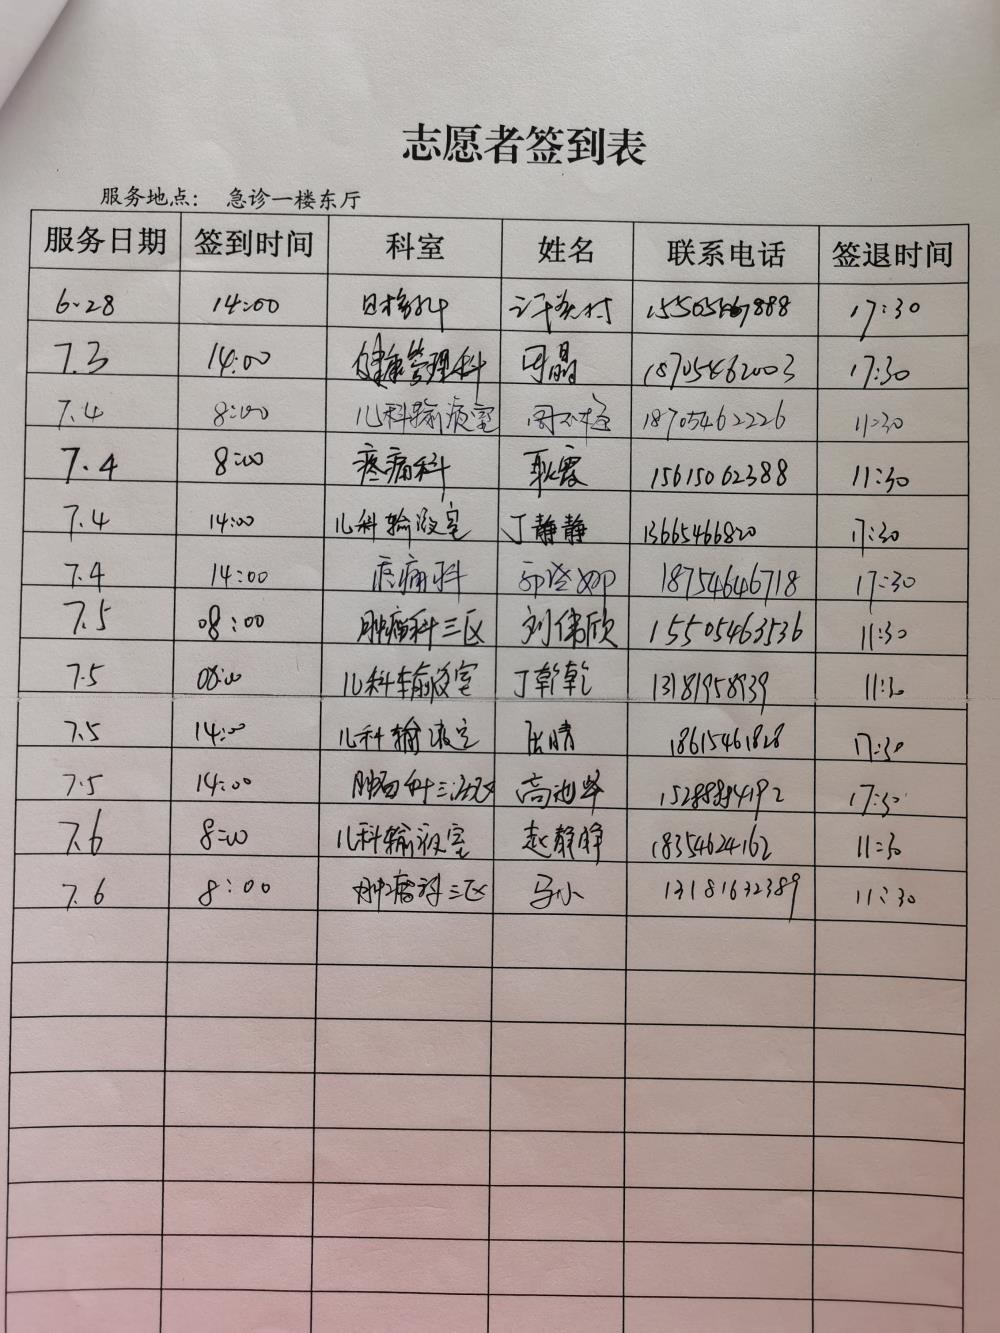 志愿者签到表
服务地点： 急诊一楼东厅
服务日期 签到时间 科室 姓名 联系电话 签退时间
6.28 14:00 17:30
7.3 14:00 健康管理科 18705462003 17:30
7.4 8:00 儿科输液室 18705462226 11:30
7.4 8:00 疼痛科 耿霞 15615062388 11:30
7.4 14:00 儿科输液室 丁静静 13665466820 17:30
7.4 14:00 疼痛科 18754646718 17:30
7.5 08:00 肿瘤科三区 刘伟欣 15505463536 11:30
7.5 08:00 儿科输液室 丁乾乾 13181958939 11:30
7.5 14:00 儿科输液室 18615461828 17:30
7.5 14:00 17:30
7.6 8:00 儿科输液室 赵静静 18354624162 11:30
7.6 8:00 肿瘤科三区 马小 13181632389 11:30